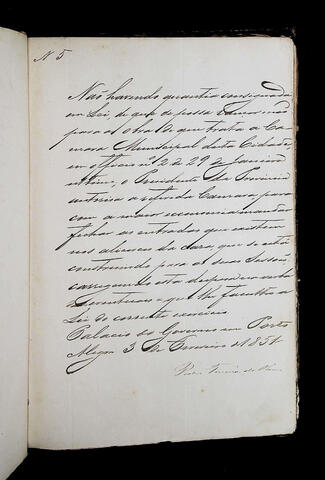 N 5
Não havendo quantia consignada
em Lei, de que se possa lançar mão
para as obras de que trata a Ca-
mara Municipal desta Cidade,
em officio nº 2 de 29 de Janeiro
ultimo, o Presidente da Provincia
autorisa a referida Camara para
com a maior economia mandar
fechar as entradas que existem
nos alicerces da casa que se está
construindo para as suas Sessões,
carregando esta despeza na verba
d'Eventuaes - que lhe faculta a
Lei do corrente exercicio
Palacio do Governo em Porto
Alegre 3 de Fevereiro de 1851